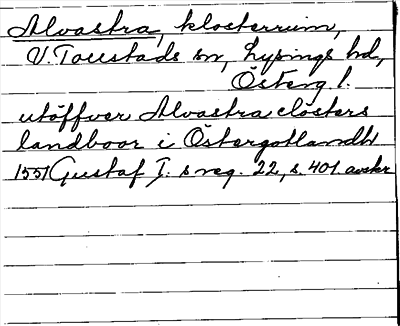 Alvastra, klosterruin,
V. Tollstads sn, Lysings hd,
Österg l.
utöffver Alvastra clösters
landboor i Östergotlandh
1551 Gustaf I. s reg. 22, s. 401. avskr